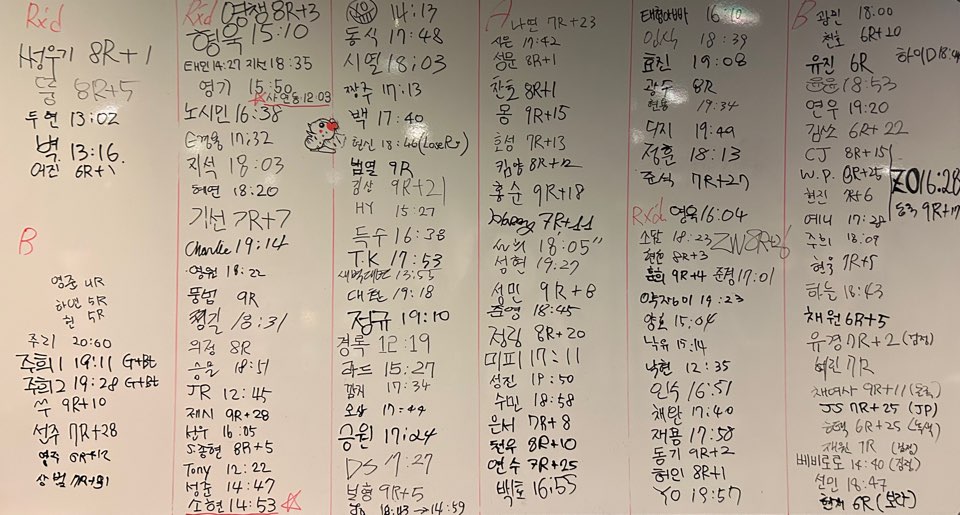 Rx'd
8R+1
8R+5
두현 13:02
벽 13:16
어진 6R+1
B
영준 4R
하연 5R
현 5R
주리 20:60
주희1 19:11 G+Bt
주희2 19:28 G+Bt
쑤 9R+10
선주 7R+28
영주
상범
Rx'd 영쟁 8R+3
형욱 15:10
태민 14:27 지선 18:35
영기 15:50
12:03
노시민 16:38
17:32
지석 18:03
혜연 18:20
기선 7R+7
Charlie 19:14
영원 18:22
풍범 9R
18:31
의정 8R
승율 18:51
JR 12:45
제시 9R+28
남우 16:05
S:종현 8R+5
Tony 12:22
성준 14:47
소현 14:53
14:13
동식 17:48
시열 18:03
장주 17:13
백 17:40
헌신 18:46 (LoseR)
범열 9R
경산 9R+21
HY 15:27
득수 16:38
TK 17:53
새벽대표 13:55
대표 19:18
정규 19:10
경록 12:19
라드 15:27
깜지 17:34
오삼 17:44
승원 17:24
DS 17:27
보형 9R+5
18:43 → 14:59
A 나연 7R+23
시은 17:42
성문 8R+1
찬호 8R+1
몽 9R+15
효성 7R+13
킴양 8R+12
홍순 9R+18
7R+11
18:05"
성현 19:27
성민 9R+8
준영 18:45
정림 8R+20
미피 17:11
성진 19:50
수민 18:58
은서 7R+8
현우 8R+10
연수 7R+25
백호 16:55
태형아빠 16:10
인식 18:39
효진 19:08
광수 8R
현용 19:34
디지 19:49
정훈 18:13
준식 7R+27
Rx'd 영욱 16:04
소담 18:23 ZW 8R+26
현준 8R+3
9R+4 준경 17:01
악작이 19:23
양호 15:04
낙유 15:14
낙현 12:35
인숙 16:51
채완 17:40
재용 17:58
동기 9R+2
허인 8R+1
YO 18:57
B 광민 18:00
천호 6R+20
유진 6R 하이D
윤윤 18:53
연우 19:20
감소 6R+22
CJ 8R+15
W.P. 8R+25 ZO 16:28
현진 7R+6 동국 9R+17
예니 17:28
주희 18:09
현욱 7R+5
하늘 18:43
채원 6R+5
유경 7R+2 (검정)
혜린 7R
채여사 9R+11
JS 7R+25 (JP)
6R+25
재원 7R
베비로로 14:40 (검정)
선민 18:47
현지 6R (보라)